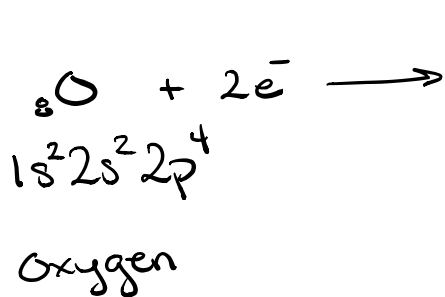 ₈O + 2e⁻ ⟶
1s²2s²2p⁴
oxygen